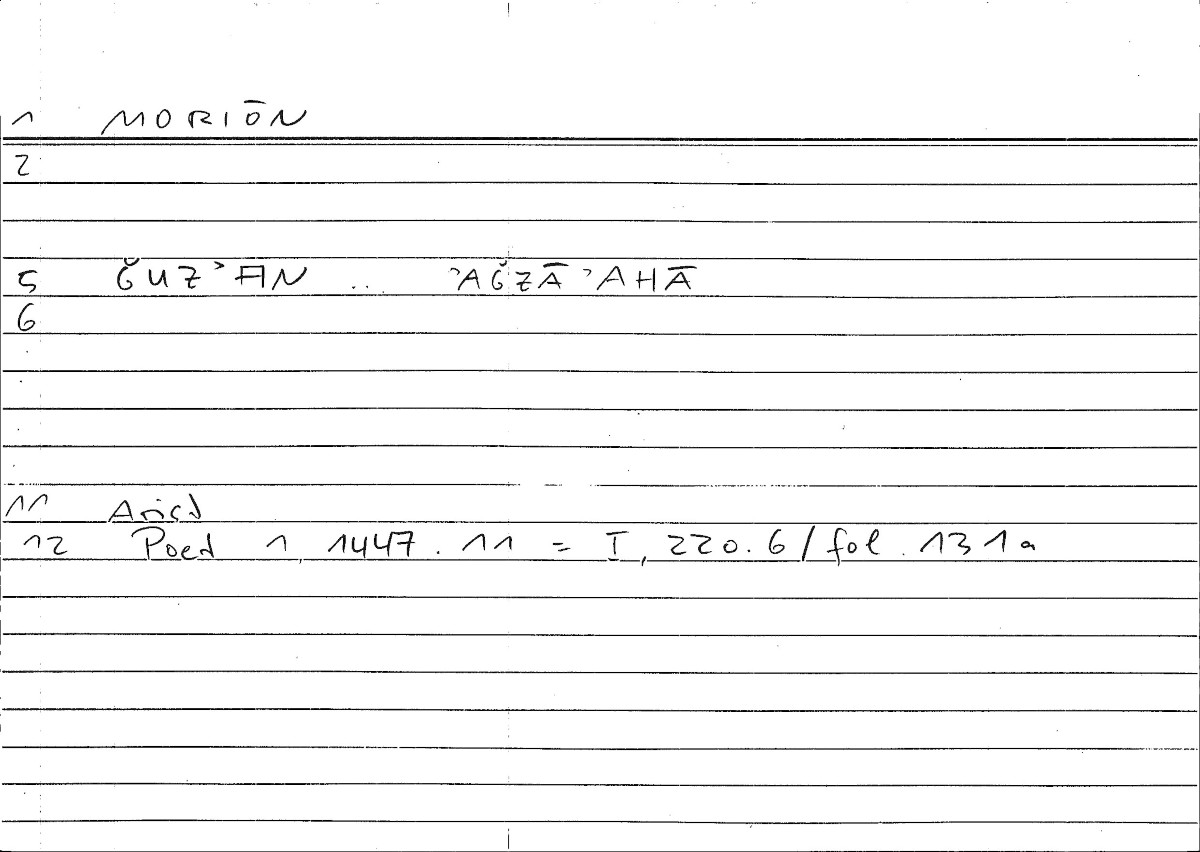 1 MORIŌN
2
5 ǦUZʾAN ... ʾAǦZĀʾAHĀ
6
11 Arist
12 Poet 1, 1447.11 = I, 220.6 / fol. 131a